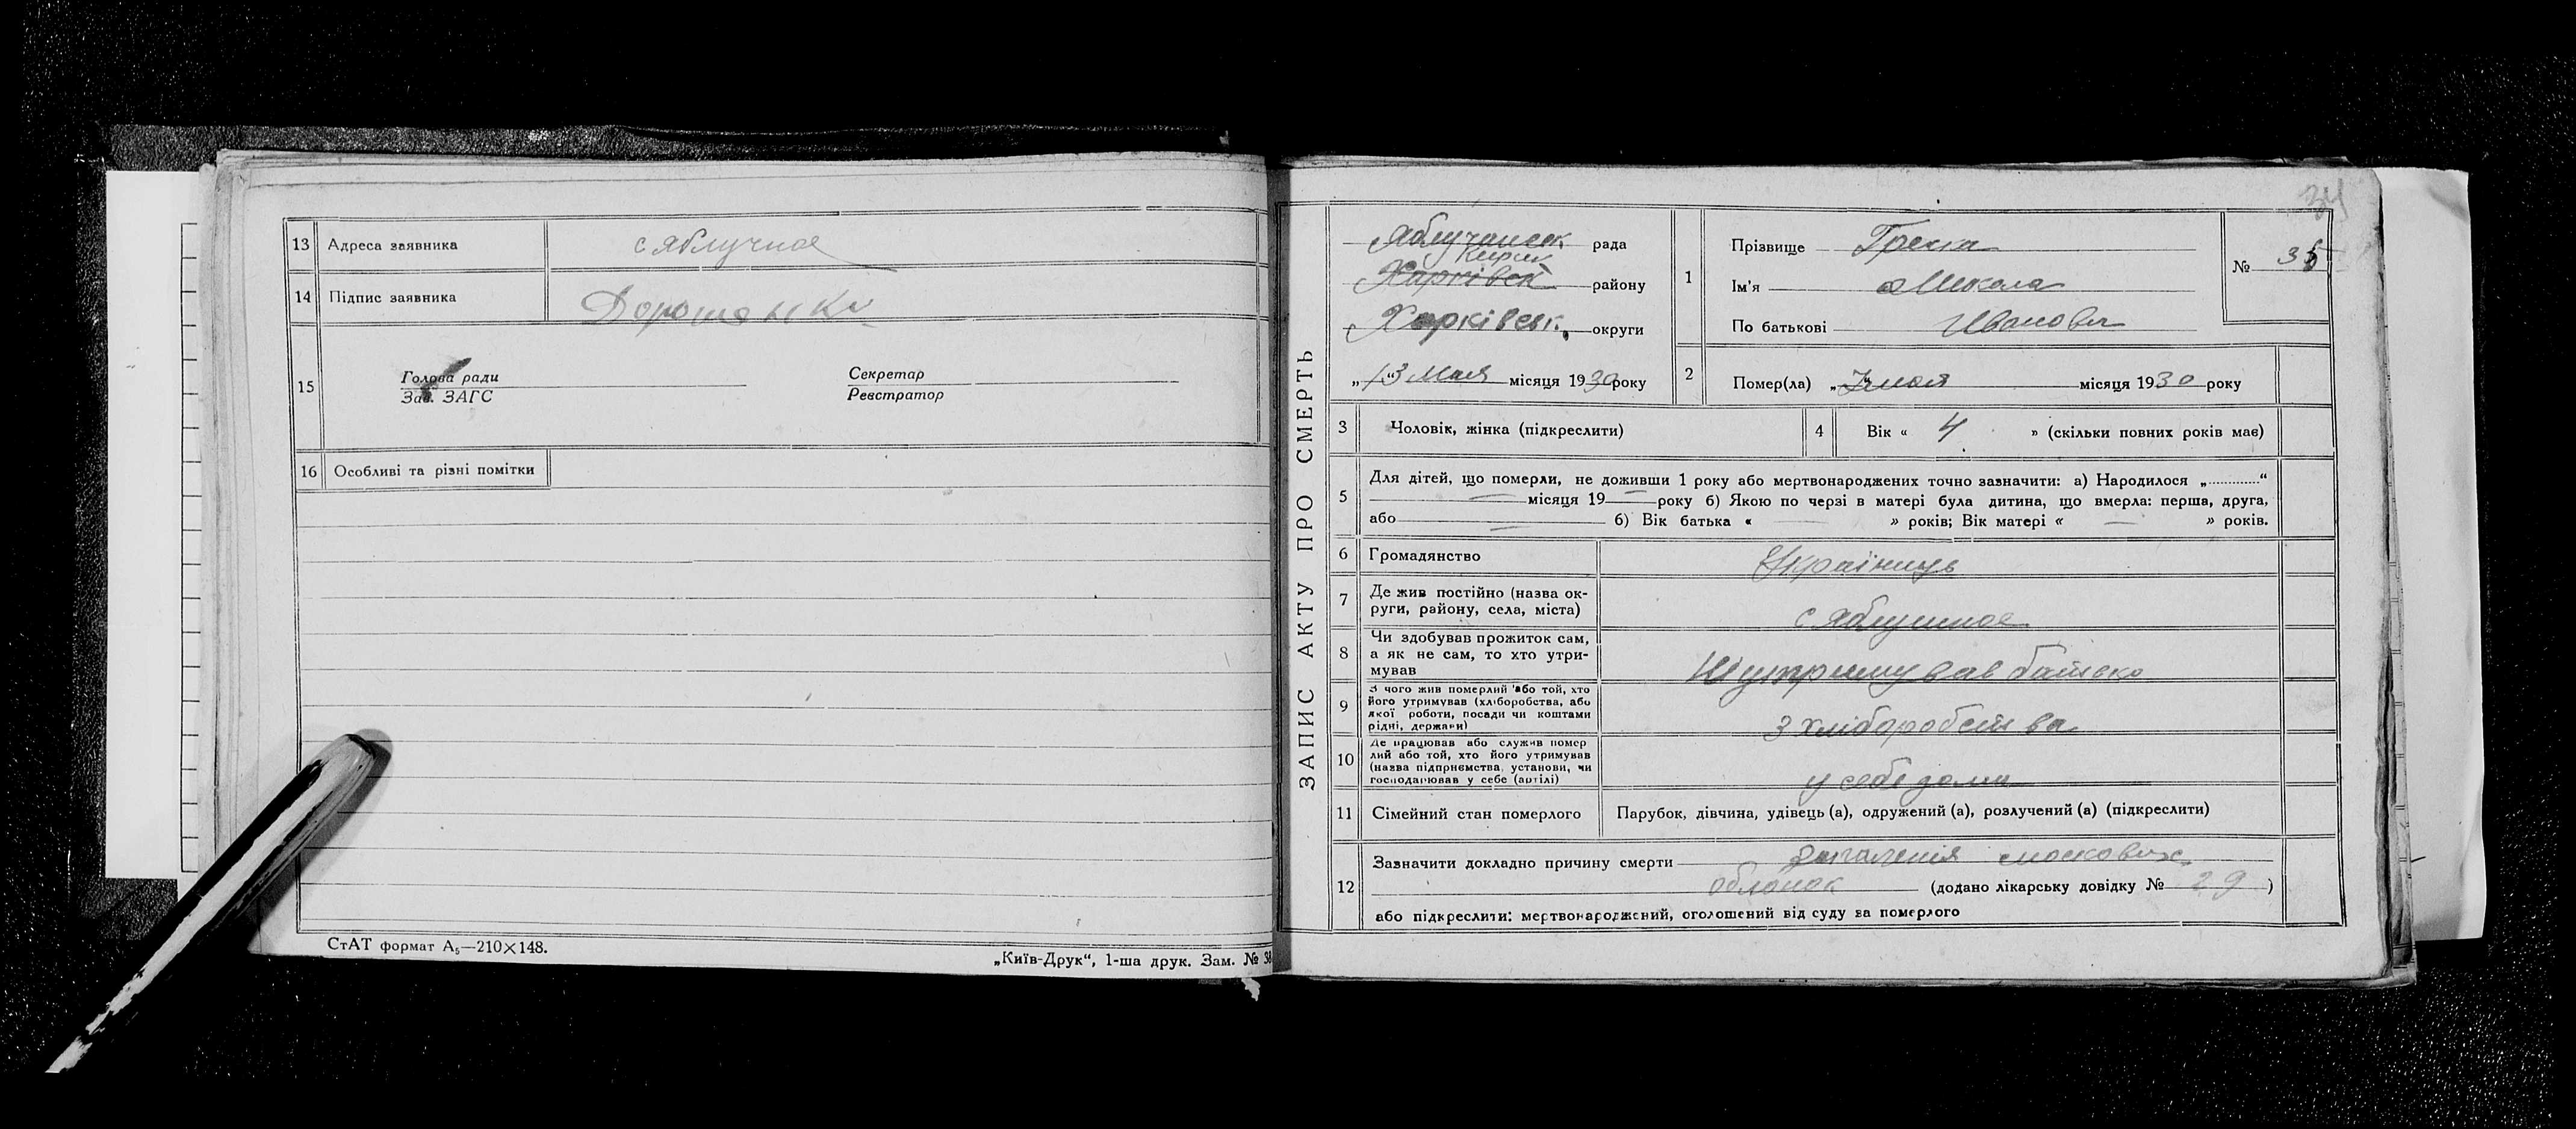 13 Адреса заявника с Яблучное
14 Підпис заявника
15 Голова ради
Зав. ЗАГС
Секретар
Реєстратор
16 Особливі та різні помітки
СтАТ формат А₅—210×148.
„Київ-Друк“, 1-ша друк. Зам. № 36
ЗАПИС АКТУ ПРО СМЕРТЬ
34
Яблучанськ рада
Харківськ району
Харківськ. округи
„13“ Мая місяця 1930 року
1 Прізвище
Ім'я Микола
По батькові Иванович
№ 35
2 Помер(ла) мая місяця 1930 року
3 Чоловік, жінка (підкреслити)
4 Вік « 4 » (скільки повних років має)
5 Для дітей, що померли, не доживши 1 року або мертвонароджених точно зазначити: а) Народилося „............“
— місяця 19 — року б) Якою по черзі в матері була дитина, що вмерла: перша, друга,
або — б) Вік батька « — » років; Вік матері « — » років.
6 Громадянство Українець
7 Де жив постійно (назва ок-
руги, району, села, міста) с Яблушное
8 Чи здобував прожиток сам,
а як не сам, то хто утри-
мував Ні утримував батько
9 З чого жив померлий або той, хто
його утримував (хліборобства, або
якої роботи, посади чи коштами
рідні, держави) З хліборобства
10 Де працював або служив помер
лий або той, хто його утримував
(назва підприємства, установи, чи
господарював у себе (артілі) у себе дома
11 Сімейний стан померлого Парубок, дівчина, удівець (а), одружений (а), розлучений (а) (підкреслити)
12 Зазначити докладно причину смерти
(додано лікарську довідку № 29)
або підкреслити: мертвонароджений, оголошений від суду за померлого